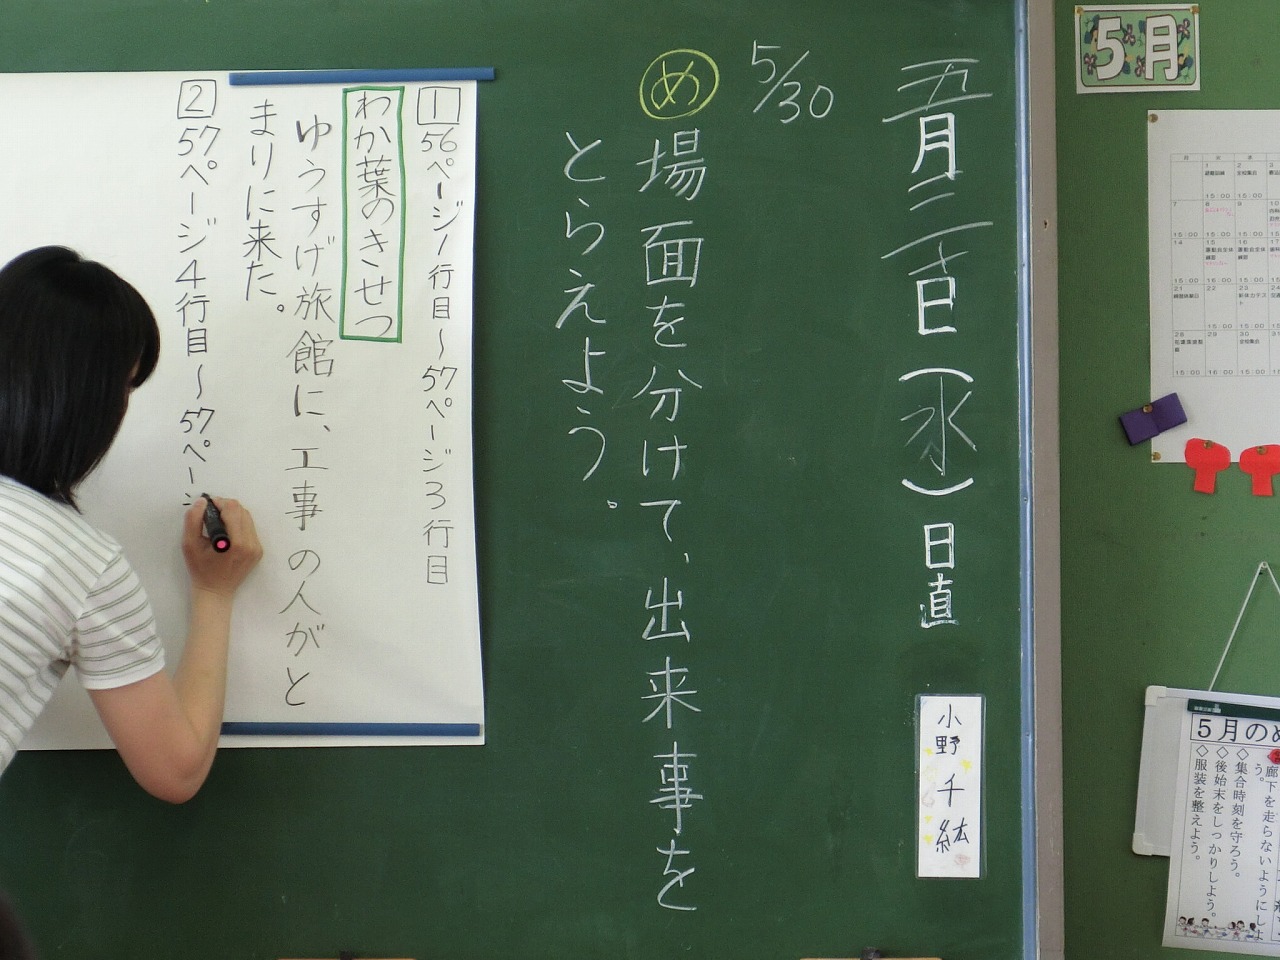 五月三十日(水)日直
小野千紘
5/30
め 場面を分けて、出来事を
とらえよう。
1 56ページ1行目〜57ページ3行目
わか葉のきせつ
ゆうすげ旅館に、工事の人がと
まりに来た。
2 57ページ4行目〜57ペー
5月
5月のめ
廊下を走らないようにしよ
う。
◇集合時刻を守ろう。
◇後始末をしっかりしよう。
◇服装を整えよう。